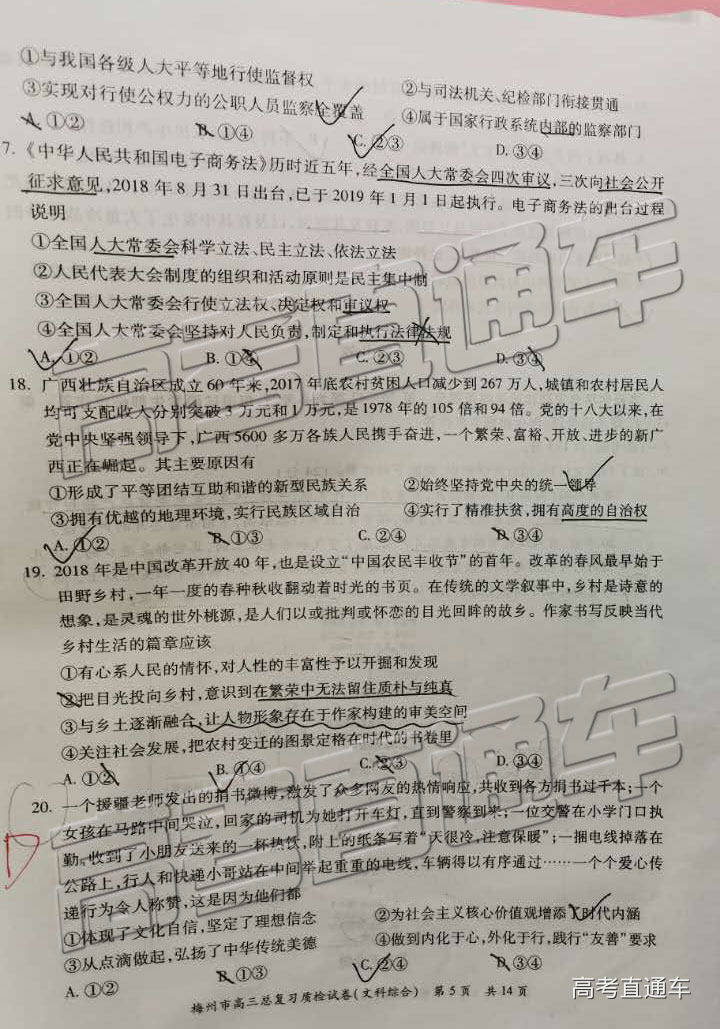 ①与我国各级人大平等地行使监督权
②与司法机关、纪检部门衔接贯通
③实现对行使公权力的公职人员监察全覆盖
④属于国家行政系统内部的监察部门
A. ①② B. ①④ C. ②③ D. ③④
7. 《中华人民共和国电子商务法》历时近五年,经全国人大常委会四次审议,三次向社会公开
征求意见,2018年8月31日出台,已于2019年1月1日起执行。电子商务法的出台过程
说明
①全国人大常委会科学立法、民主立法、依法立法
②人民代表大会制度的组织和活动原则是民主集中制
③全国人大常委会行使立法权、决定权和审议权
④全国人大常委会坚持对人民负责,制定和执行法律法规
A. ①② B. ①④ C. ②③ D. ③④
18. 广西壮族自治区成立60年来,2017年底农村贫困人口减少到267万人,城镇和农村居民人
均可支配收入分别突破3万元和1万元,是1978年的105倍和94倍。党的十八大以来,在
党中央坚强领导下,广西5600多万各族人民携手奋进,一个繁荣、富裕、开放、进步的新广
西正在崛起。其主要原因有
①形成了平等团结互助和谐的新型民族关系 ②始终坚持党中央的统一领导
③拥有优越的地理环境,实行民族区域自治 ④实行了精准扶贫,拥有高度的自治权
A. ①② B. ①③ C. ②④ D. ③④
19. 2018年是中国改革开放40年,也是设立“中国农民丰收节”的首年。改革的春风最早始于
田野乡村,一年一度的春种秋收翻动着时光的书页。在传统的文学叙事中,乡村是诗意的
想象,是灵魂的世外桃源,是人们以或批判或怀恋的目光回眸的故乡。作家书写反映当代
乡村生活的篇章应该
①有心系人民的情怀,对人性的丰富性予以开掘和发现
②把目光投向乡村,意识到在繁荣中无法留住质朴与纯真
③与乡土逐渐融合,让人物形象存在于作家构建的审美空间
④关注社会发展,把农村变迁的图景定格在时代的书卷里
A. ①② B. ①④ C. ②③ D. ③④
20. 一个援疆老师发出的捐书微博,激发了众多网友的热情响应,共收到各方捐书过千本;一个
女孩在马路中间哭泣,回家的司机为她打开车灯,直到警察到来;一位交警在小学门口执
勤,收到了小朋友送来的一杯热饮,附上的纸条写着“天很冷,注意保暖”;一捆电线掉落在
公路上,行人和快递小哥站在中间举起重重的电线,车辆得以有序通过……一个个爱心传
递行为令人称赞,这是因为他们都
①体现了文化自信,坚定了理想信念 ②为社会主义核心价值观增添了时代内涵
③从点滴做起,弘扬了中华传统美德 ④做到内化于心,外化于行,践行“友善”要求
A. ①② B. ①③ C. ②④ D. ③④
梅州市高三总复习质检试卷(文科综合) 第5页 共14页
高考直通车
高考直通车
高考直通车
D